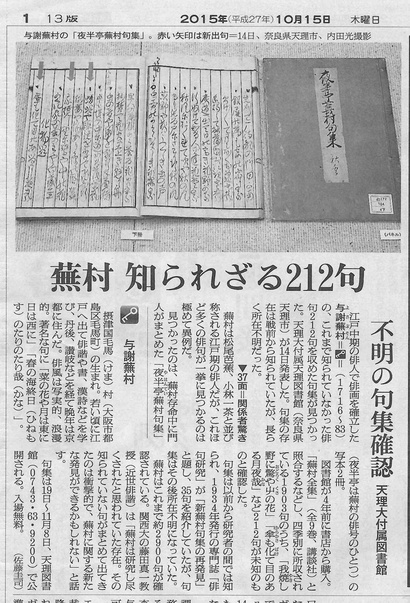 1 13版 2015年(平成27年)10月15日 木曜日
与謝蕪村の「夜半亭蕪村句集」。赤い矢印は新出句=14日、奈良県天理市、内田光撮影
下冊
(パネル)
蕪村 知られざる212句
不明の句集確認 天理大付属図書館
江戸中期の俳人で俳画を確立した
与謝蕪村=(1716〜83)
の、これまで知られていなかった俳
句212句を収めた句集が見つかっ
た。天理大付属天理図書館(奈良県
天理市)が14日発表した。句集の存
在は戦前から知られていたが、長ら
く所在不明だった。
▼37面=関係者驚き
蕪村は松尾芭蕉、小林一茶と並び
称される江戸期の俳人だが、これほ
ど多くの俳句が一緒に見つかるのは
極めて異例だ。
見つかったのは、蕪村存命中に門
人がまとめた「夜半亭蕪村句集」
与謝蕪村
摂津国毛馬(けま)村(大阪市都
島区毛馬町)の生まれ。若い頃に江
戸へ出て俳諧や書、漢詩などを学
び、丹後、讃岐などを経て晩年は京
都に住んだ。俳風は写実的・浪漫
的。著名な句に「菜の花や月は東に
日は西に」「春の海終日(ひねも
す)のたりのたり哉(かな)」。
(夜半亭は蕪村の俳号のひとつ)の
写本2冊。
図書館が4年前に書店から購入。
「蕪村全集」(全9巻、講談社)と
照合するなどし、四季別に所収され
ている1903句のうち、「我焼し
野に驚や艸の花」「傘も化て目のあ
る月夜哉」など212句が未知のも
のと確認した。
句集は以前から研究者の間では知
られ、1934年発行の専門誌「俳
句研究」が「新蕪村句集の再発見」
と題し、35句を紹介していたが、句
集はその後所在不明になっていた。
蕪村はこれまで約2900句が確
認されている。関西大の藤田真一教
授(近世俳諧)は「蕪村は研究し尽
くされたと思われていた存在。その
知られていない句がまとめて出てき
たのは衝撃的で、蕪村に関する新た
な発見ができるかもしれない」と話
す。
句集は19日〜11月8日、天理図書
館(0743・63・9200)で公
開される。入場無料。
(佐藤圭司)